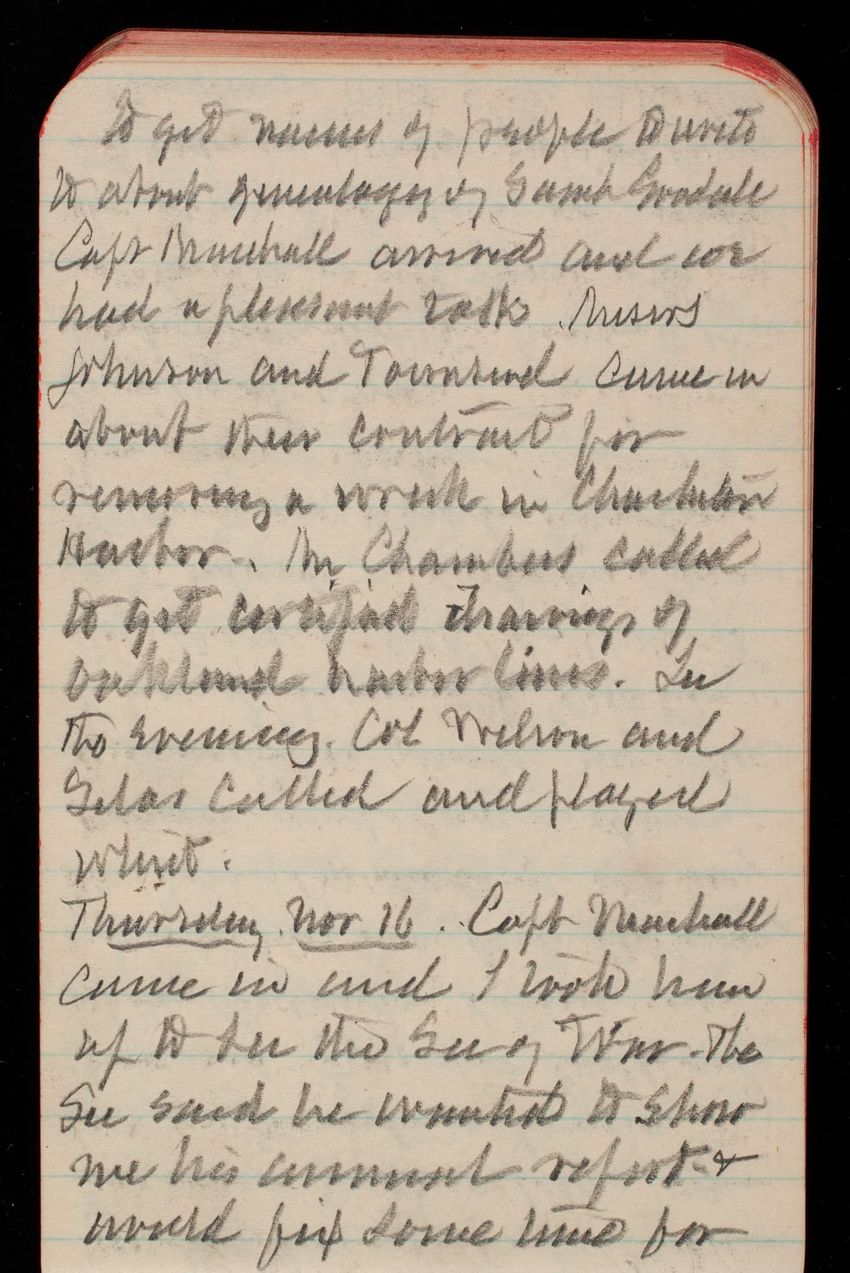 to get names of people to write
to about genealogy of Sarah Goodale
Capt Marshall arrived and we
had a pleasant talk. Messrs
Johnson and Townsend came in
about their contract for
removing a wreck in Charleston
Harbor. Mr Chambers called
to get certified tracings of
Oakland harbor lines. In
the evening. Col Wilson and
Selas called and played
whist.
Thursday Nov 16. Capt Marshall
came in and I took him
up to see the Sec of War. The
Sec said he wanted to show
me his annual report &
would fix some time for